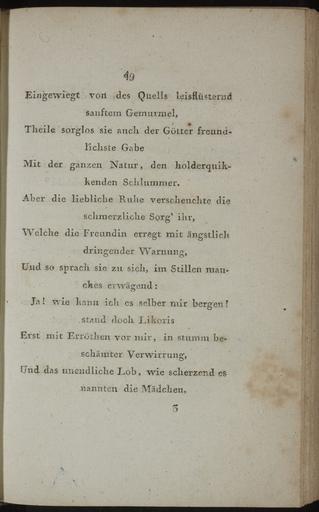 49
Eingewiegt von des Quells leisflüsternd
sanftem Gemurmel,
Theile sorglos sie auch der Götter freund-
lichste Gabe
Mit der ganzen Natur, den holderquik-
kenden Schlummer.
Aber die liebliche Ruhe verscheuchte die
schmerzliche Sorg' ihr,
Welche die Freundin erregt mit ängstlich
dringender Warnung,
Und so sprach sie zu sich, im Stillen man-
ches erwägend:
Ja! wie kann ich es selber mir bergen!
stand doch Likoris
Erst mit Erröthen vor mir, in stumm be-
schämter Verwirrung,
Und das unendliche Lob, wie scherzend es
nannten die Mädchen,
3